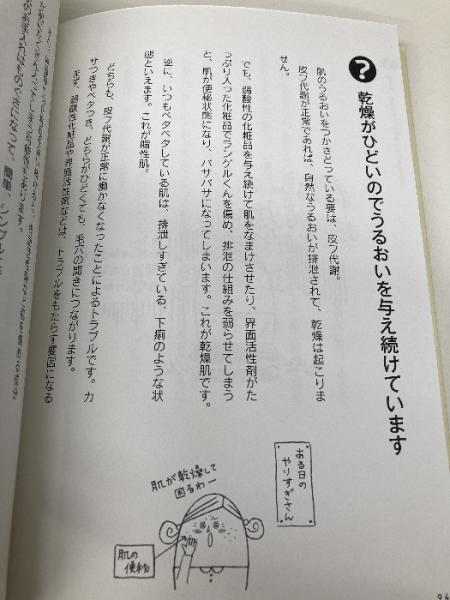 ?
乾燥がひどいのでうるおいを与え続けています
肌のうるおいをつかさどっている要は、皮フ代謝。
皮フ代謝が正常であれば、自然なうるおいが排泄されて、乾燥は起こりま
せん。
でも、弱酸性の化粧品を与え続けて肌をなまけさせたり、界面活性剤がた
っぷり入った化粧品でランゲルくんを傷め、排泄の仕組みを弱らせてしまう
と、肌が便秘状態になり、バサバサになってしまいます。これが乾燥肌です。
逆に、いつもベタベタしている肌は、排泄しすぎている、下痢のような状
態といえます。これが脂性肌。
どちらも、皮フ代謝が正常に働かなくなったことによるトラブルです。カ
サつきやベタつき、どちらがひどくても、毛穴の開きにつながります。
まず、弱酸性化粧品や界面活性剤などは、トラブルをもたらす要因になる
ある日の
やりすぎさん
肌が乾燥して
困るわー
肌の
便秘
94